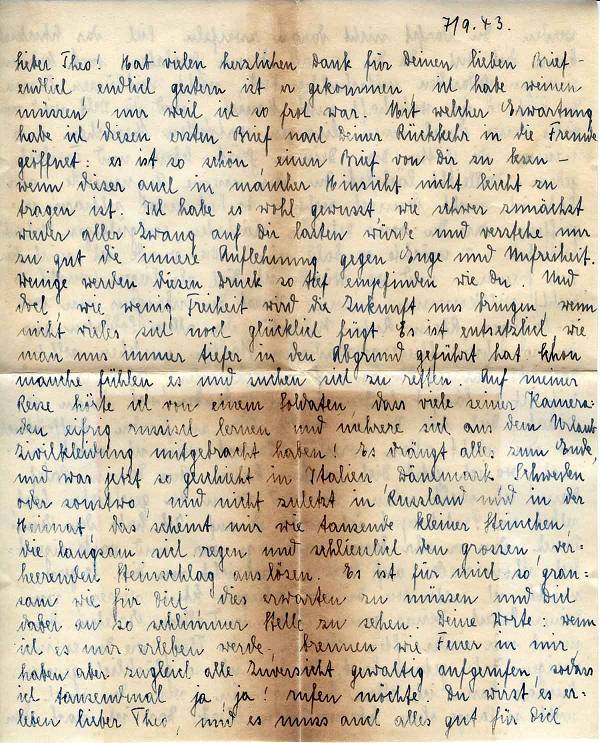 7/9.43.
Lieber Theo! Hab vielen herzlichen Dank für Deinen lieben Brief -
endlich, endlich gestern ist er gekommen, ich habe weinen
müssen, nur weil ich so froh war. Mit welcher Erwartung
habe ich diesen ersten Brief nach Deiner Rückkehr in die Fremde
geöffnet: es ist so schön, einen Brief von Dir zu lesen -
wenn dieser auch in mancher Hinsicht nicht leicht zu
tragen ist. Ich habe es wohl gewusst, wie schwer zunächst
wieder aller Zwang auf Dir lasten würde und verstehe nur
zu gut die innere Auflehnung gegen Enge und Unfreiheit.
Wenige werden diesen Druck so tief empfinden wie Du. Und
doch, wie wenig Freiheit wird die Zukunft uns bringen, wenn
nicht vieles sich noch glücklich fügt. Es ist entsetzlich, wie
man uns immer tiefer in den Abgrund geführt hat. Schon
manche fühlen es und suchen sich zu retten. Auf meiner
Reise hörte ich von einem Soldaten, dass viele seiner Kamera-
den eifrig russisch lernen und mehrere sich aus dem Urlaub
Zivilkleidung mitgebracht haben! Es drängt alles zum Ende,
und was jetzt so geschieht in Italien, Dänemark, Schweden
oder sonstwo, und nicht zuletzt in Russland und in der
Heimat, das scheint mir wie tausende kleiner Steinchen,
die langsam sich regen und schließlich den grossen, ver-
heerenden Steinschlag auslösen. Es ist für mich so grau-
sam wie für Dich, dies erwarten zu müssen und Dich
dabei an so schlimmer Stelle zu sehen. Deine Worte: wenn
ich es nur erleben werde -, brennen wie Feuer in mir,
haben aber zugleich alle Zuversicht gewaltig aufgerufen, sodass
ich tausendmal ja, ja! rufen möchte. Du wirst es er-
leben lieber Theo, und es muss auch alles gut für Dich